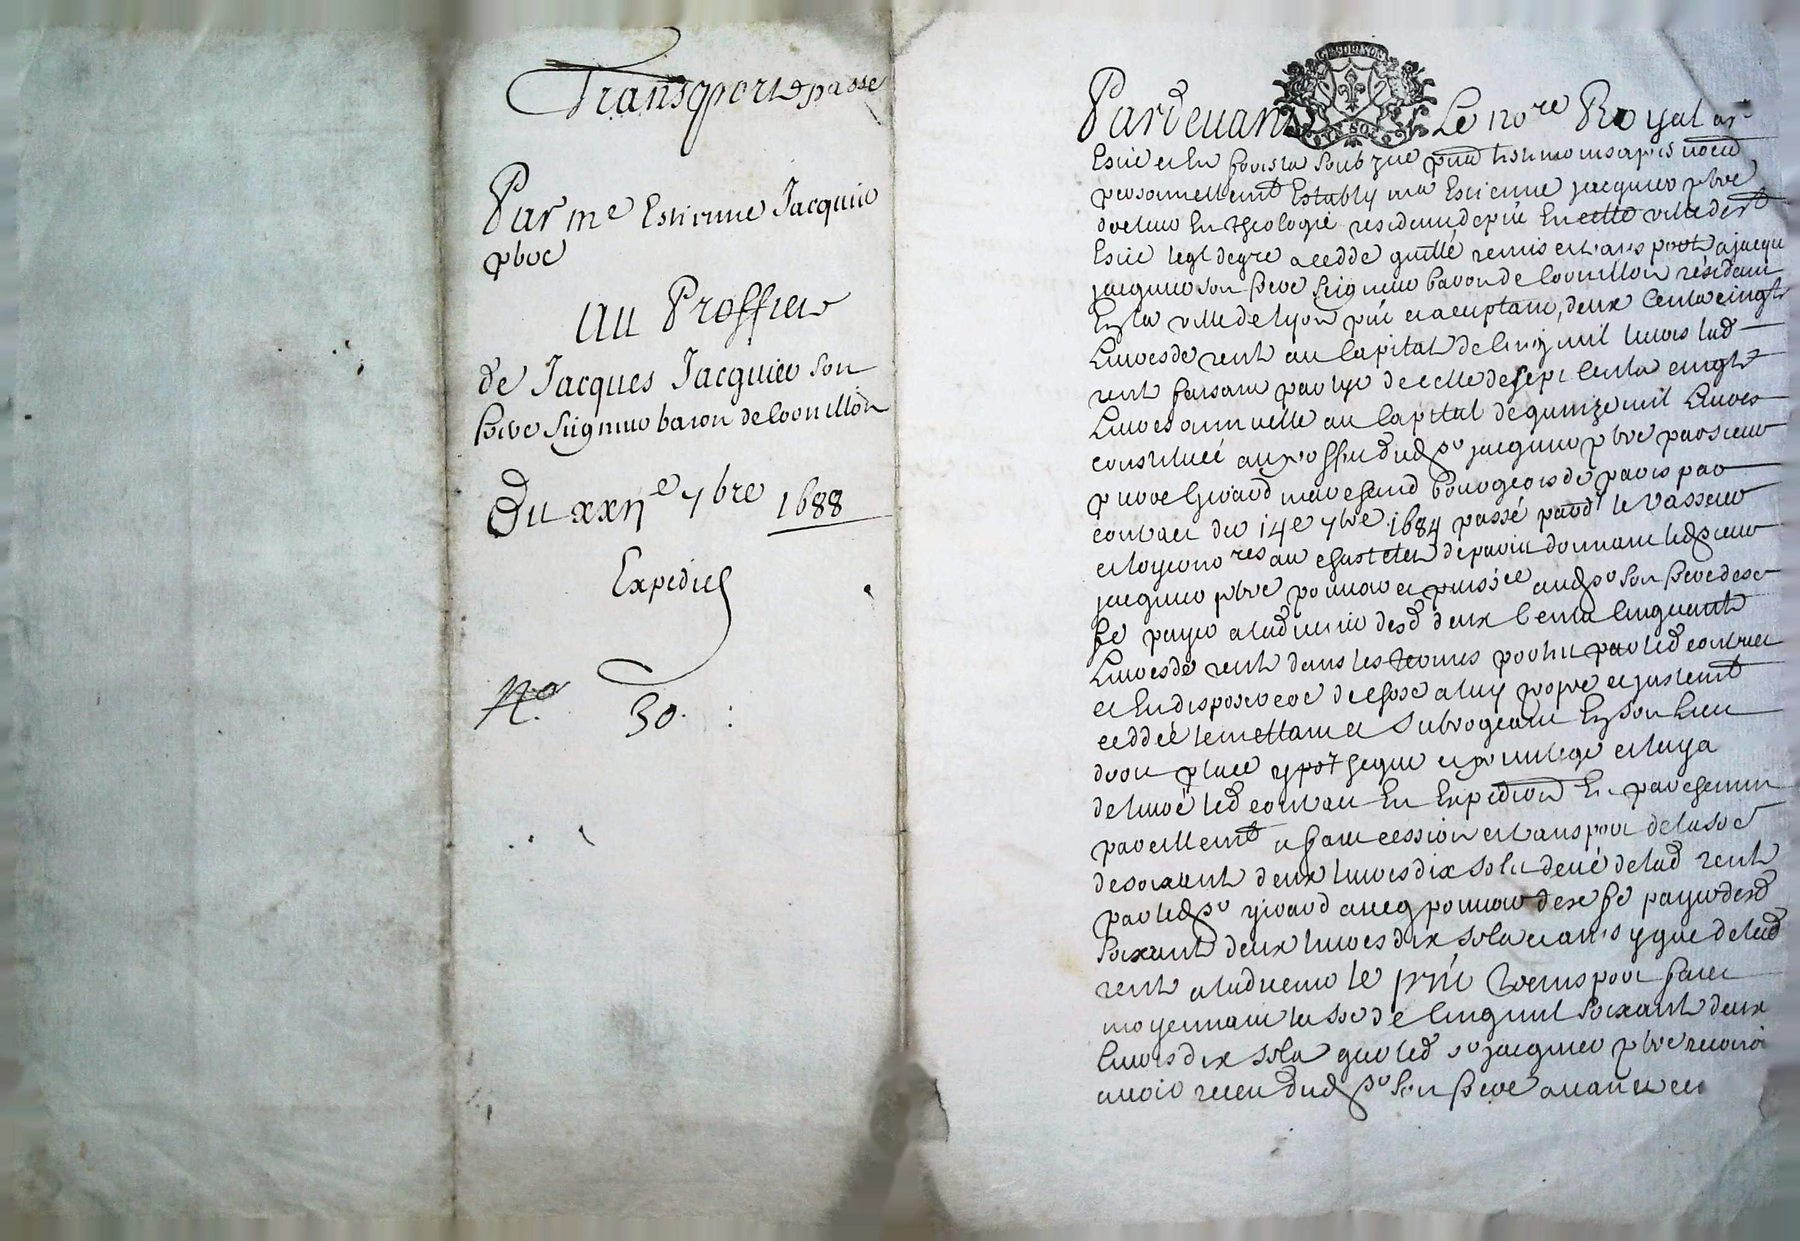 Transport passé
Par me Estienne Jacquier
pbre
Au Proffict
de Jacques Jacquier son
frere seigneur baron de Cornillon
Du xxije 7bre 1688
Expedié
No 30
GN. DE LYON
UN SOL
Pardevant Le nore Royal
personnellemt estably me Estienne jacquier pbre
docteur en theologie residant en cette ville
Esne de gré a ceddé quitté remis et transporté a jacques
jacquier son frere seigneur baron de Cornillon résidant
en la ville de lyon pnt et acceptant, deux cents cinqte
Livres de rente au capital de cinq mil livres lad
rente faisant partye de celle de sept cents cinqte
Livres annuelle au capital de quinze mil Livres
constituée au proffict dud sr jacquier pbre par sieur
pierre Giraud marchand bourgeois de paris par
contract du 14e 7bre 1684 passé pardt le Vasseur
et nores au chastelet de paris donnant led sieur
jacquier pbre pouvoir et puissce aud sr son frere de se
fe payer a ladvenir desd deux cents cinquante
Livres de rente dans les termes portés par led contract
et en disposer de chose a luy propre et justemt
ceddée le mettant et subrogeant en son lieu
droit place ypotheque et privilege et luy a
delivré led contract en expedition en parchemin
pareillemt a faict cession et transport de la soe
de soixante deux livres dix sols de lad rente
par led sr giraud avecq pouvoir de se fe payer desd
soixante deux livres dix sols
rente a ladvenir le
moyennant la soe de cinq mil soixante deux
livres dix sols que led sr jacquier pbre
avoir receu dud sr son frere avant